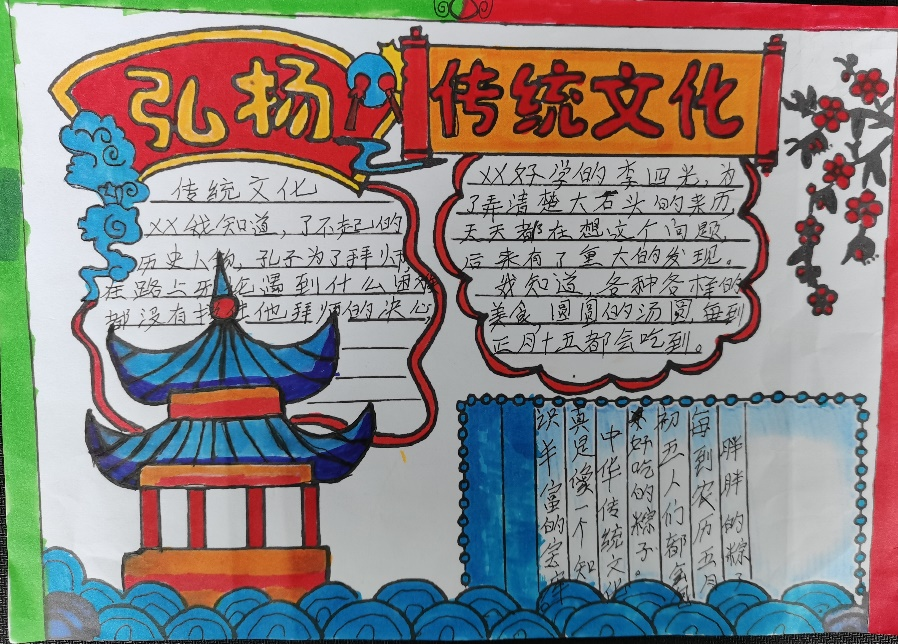 弘扬
传统文化
传统文化
XX我知道，了不起的
历史人物，孔子为了拜师
在路上
遇到什么困
都没有
他拜师的决心，
XX好学的李四光，为
了弄清楚大石头的来历
天天都在想这个问题，
后来有了重大的发现。
我知道，各种各样的
美食，圆圆的汤圆，每到
正月十五都会吃到。
胖胖的粽
每到农历五月
初五人们都会
好吃的粽子。
中华传统文化
真是像一个知
识丰富的宝库